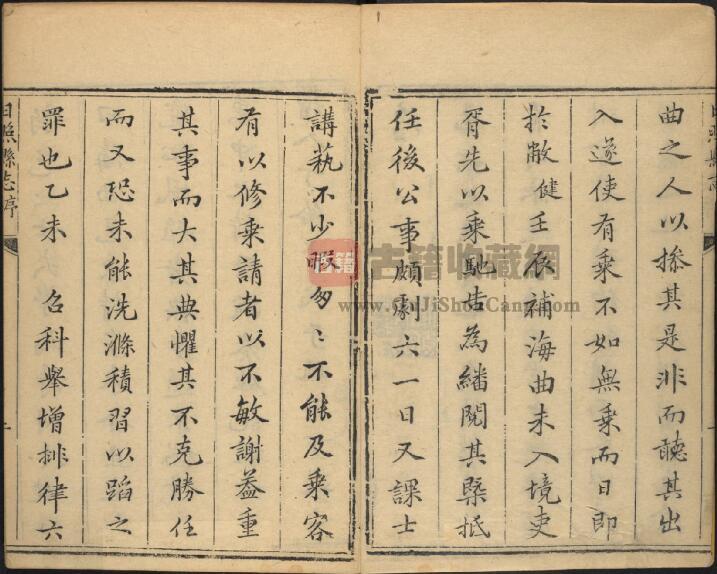 日照縣志
曲之人以摻其是非而聽其出
入遂使有乘不如無乘而日即
於敝健壬辰補海曲未入境吏
胥先以乘馳告為繙閱其槩抵
任後公事頗劇六一日又課士
講蓺不少暇匆〻不能及乘客
有以修乘請者以不敏謝葢重
其事而大其典懼其不克勝任
而又恐未能洗滌積習以蹈之
罪也乙未 召科舉增排律六
日照縣志序
古籍收藏網
www.GuJiShouCang.com